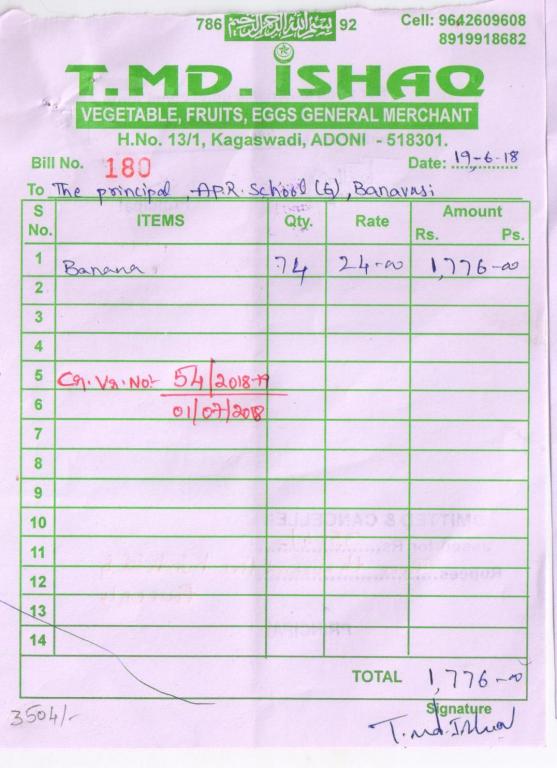 786 بسم الله الرحمن الرحيم 92
Cell: 9642609608
8919918682
T.MD. ISHAQ
VEGETABLE, FRUITS, EGGS GENERAL MERCHANT
H.No. 13/1, Kagaswadi, ADONI - 518301.
Bill No. 180 Date: 19-6-18
To The principal, A.P.R. School (G), Banavasi
S No. ITEMS Qty. Rate Amount
Rs. Ps.
1 Banana 74 24-00 1,776-00
2
3
4
5 Cq. Vr. No:- 54/2018-19
6 01/07/2018
7
8
9
10
11
12
13
14
TOTAL 1,776-00
3504/- Signature
T.md.Ishaq